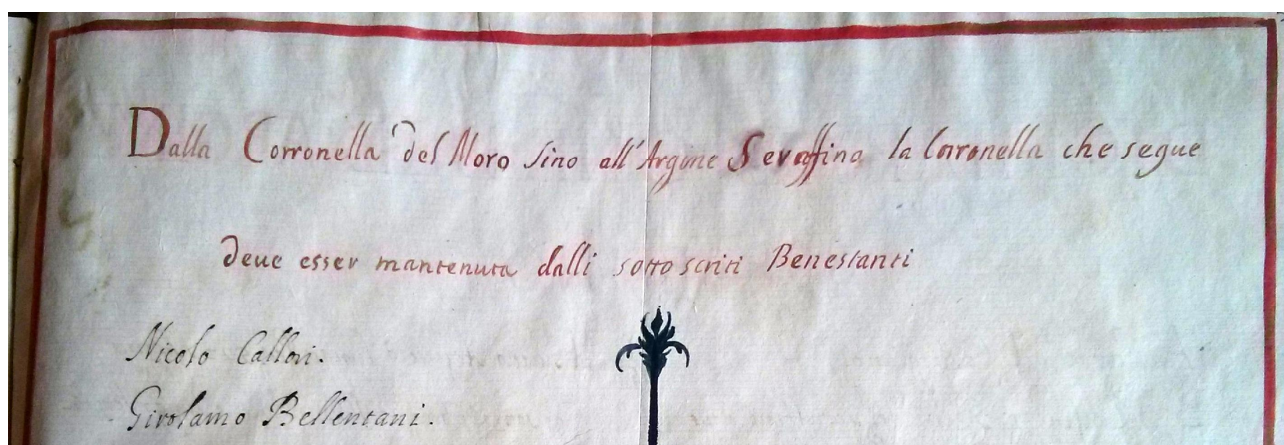 Dalla Corronella del Moro sino all'Argine Seraffina la Corronella che segue
deue esser mantenuta dalli sotto scriti Benestanti
Nicolo Callori.
Girolamo Bellentani.